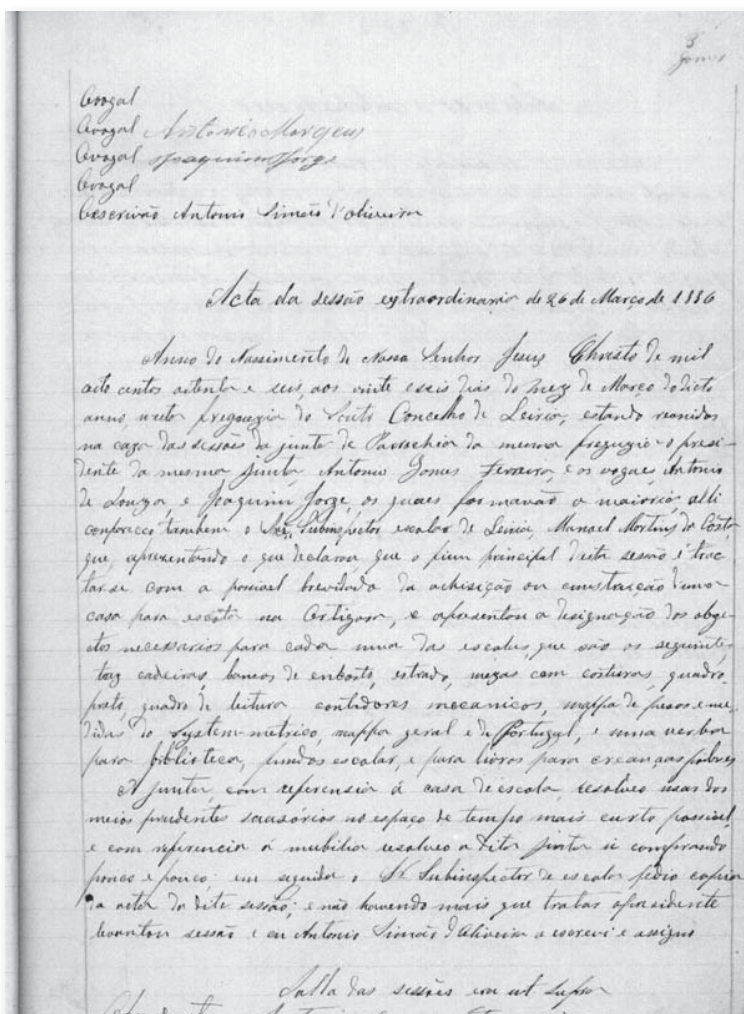 3
Gomes
Ovogal
Ovogal Antonio Marques
Ovogal Joaquim Jorge
Ovogal
Oescrivão Antonio Simão d'Oliveira
Acta da sessão extraordinaria de 26 de Março de 1886
Anno do Nassimento de Nosso Senhor Jesus Christo de mil
oito centos oitenta e seis, aos vinte eseis dias do mez de Março do dicto
anno, nesta freguezia do Souto Concelho de Leiria, estando reunidos
na caza das sessões da junta de Parochia da mesma freguezia o presi-
dente da mesma junta, Antonio Gomes Ferreira, e os vogaes, Antonio
de Souza, e Joaquim Jorge, os quaes formavão a maioria alli
conpareceo tambem o Subinspector escolar de Leiria, Manoel Martins da Costa
que, aprezentando o que declarou, que o fim principal desta sessão é trac
tar-se com a possivel brevidade da construcção d'uma
casa para escola na Ortigosa, e apresentou a designação dos obge-
ctos necessarios para cada uma das escolas, que são os seguintes
trez cadeiras, bancos de encosto, estrado, mezas com quadro
preto, quadro de leitura contadores mecanicos, mappa de pezos e me-
didas do System-metrico, mappa geral e de Portugal, e uma verba
para biblioteca, fundos escolar, e para livros para creanças pobres
A junta, com referensia á casa de escola, resolveo usar dos
meios prudentes no espaço de tempo mais curto possivel,
e com referencia á mubilia resolveo a dita junta ir comprando
pouco e pouco; em seguida o Sr Subinspector de escolas pedio copia
da acta da dita sessão; e não havendo mais que tratar opresidente
levantou sessão e eu Antonio Simão d'Oliveira a escrevi e assigno
Salla das sessões era ut supra